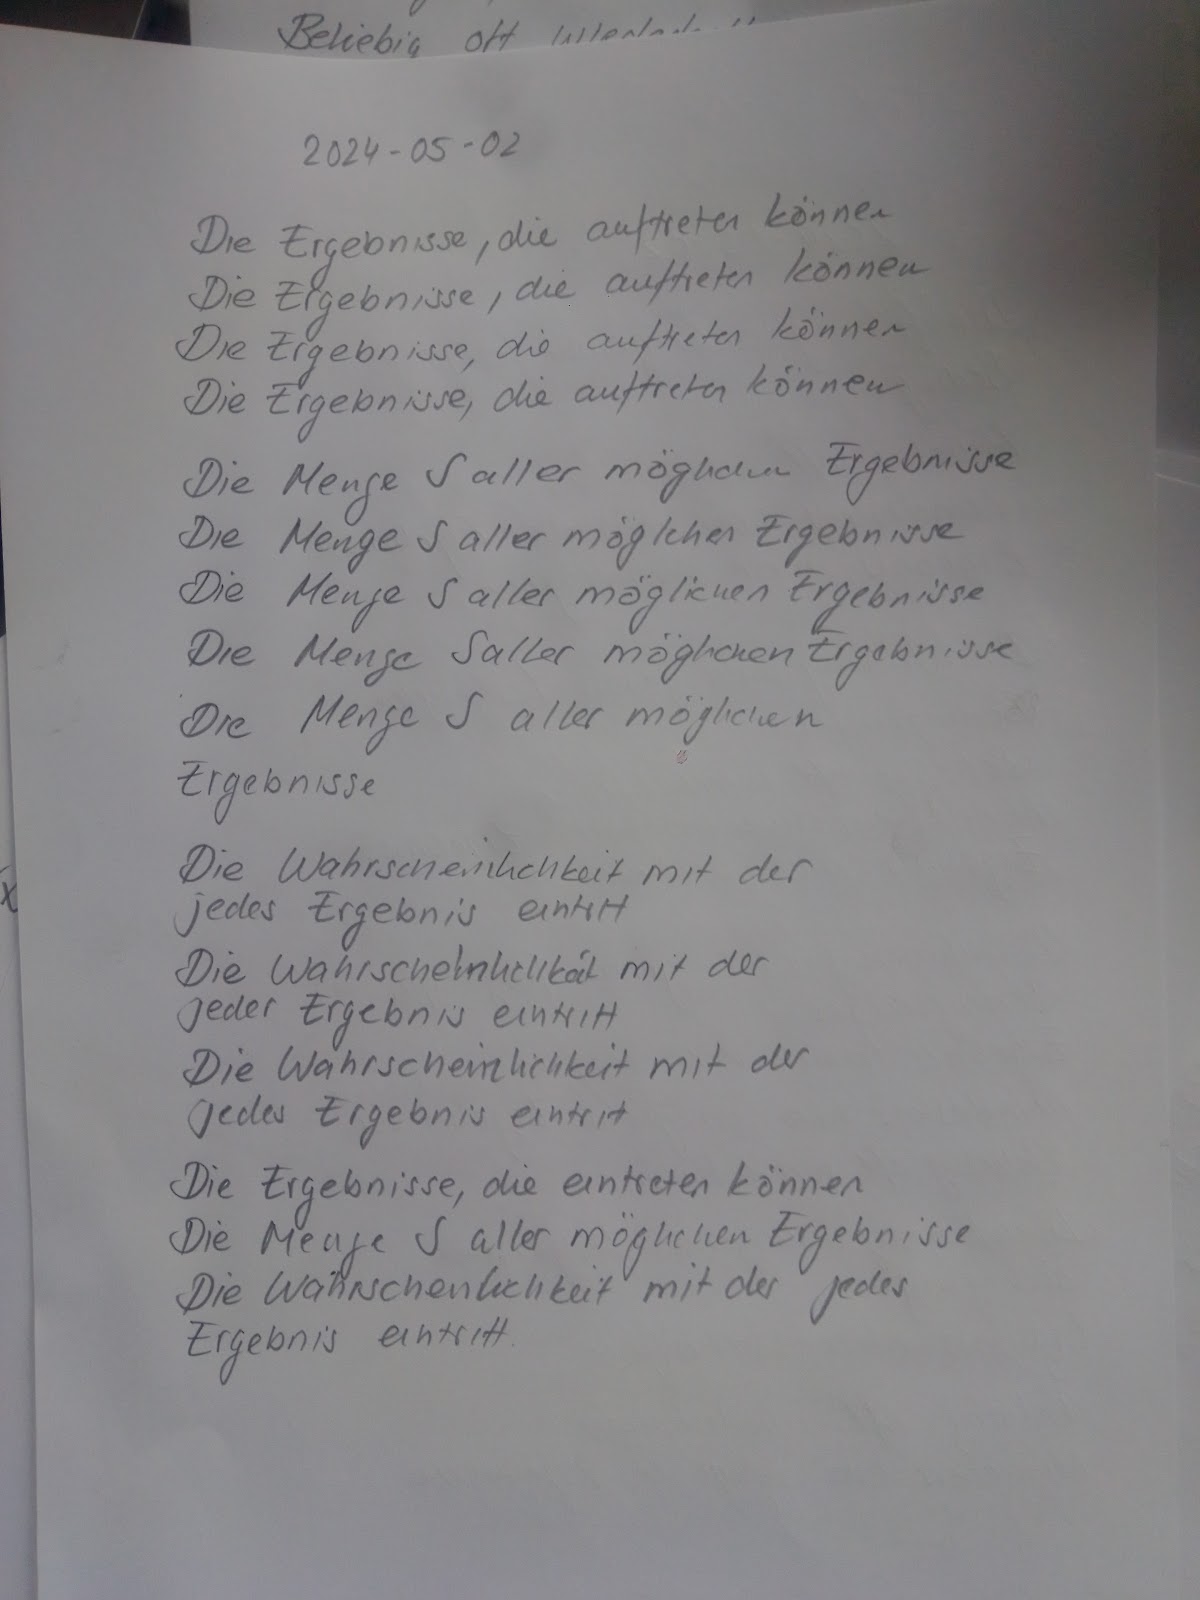 Beliebig oft
2024-05-02
Die Ergebnisse, die auftreten können
Die Ergebnisse, die auftreten können
Die Ergebnisse, die auftreten können
Die Ergebnisse, die auftreten können
Die Menge S aller möglichen Ergebnisse
Die Menge S aller möglchen Ergebnisse
Die Menge S aller möglichen Ergebnisse
Die Menge S aller möglichen Ergebnisse
Die Menge S aller möglichen
Ergebnisse
Die Wahrscheinlichkeit mit der
jedes Ergebnis eintritt
Die Wahrscheinlichkeit mit der
jeder Ergebnis eintritt
Die Wahrscheinlichkeit mit der
jedes Ergebnis eintrit
Die Ergebnisse, die eintreten können
Die Menge S aller möglichen Ergebnisse
Die Wahrschenlichkeit mit der jedes
Ergebnis eintritt.